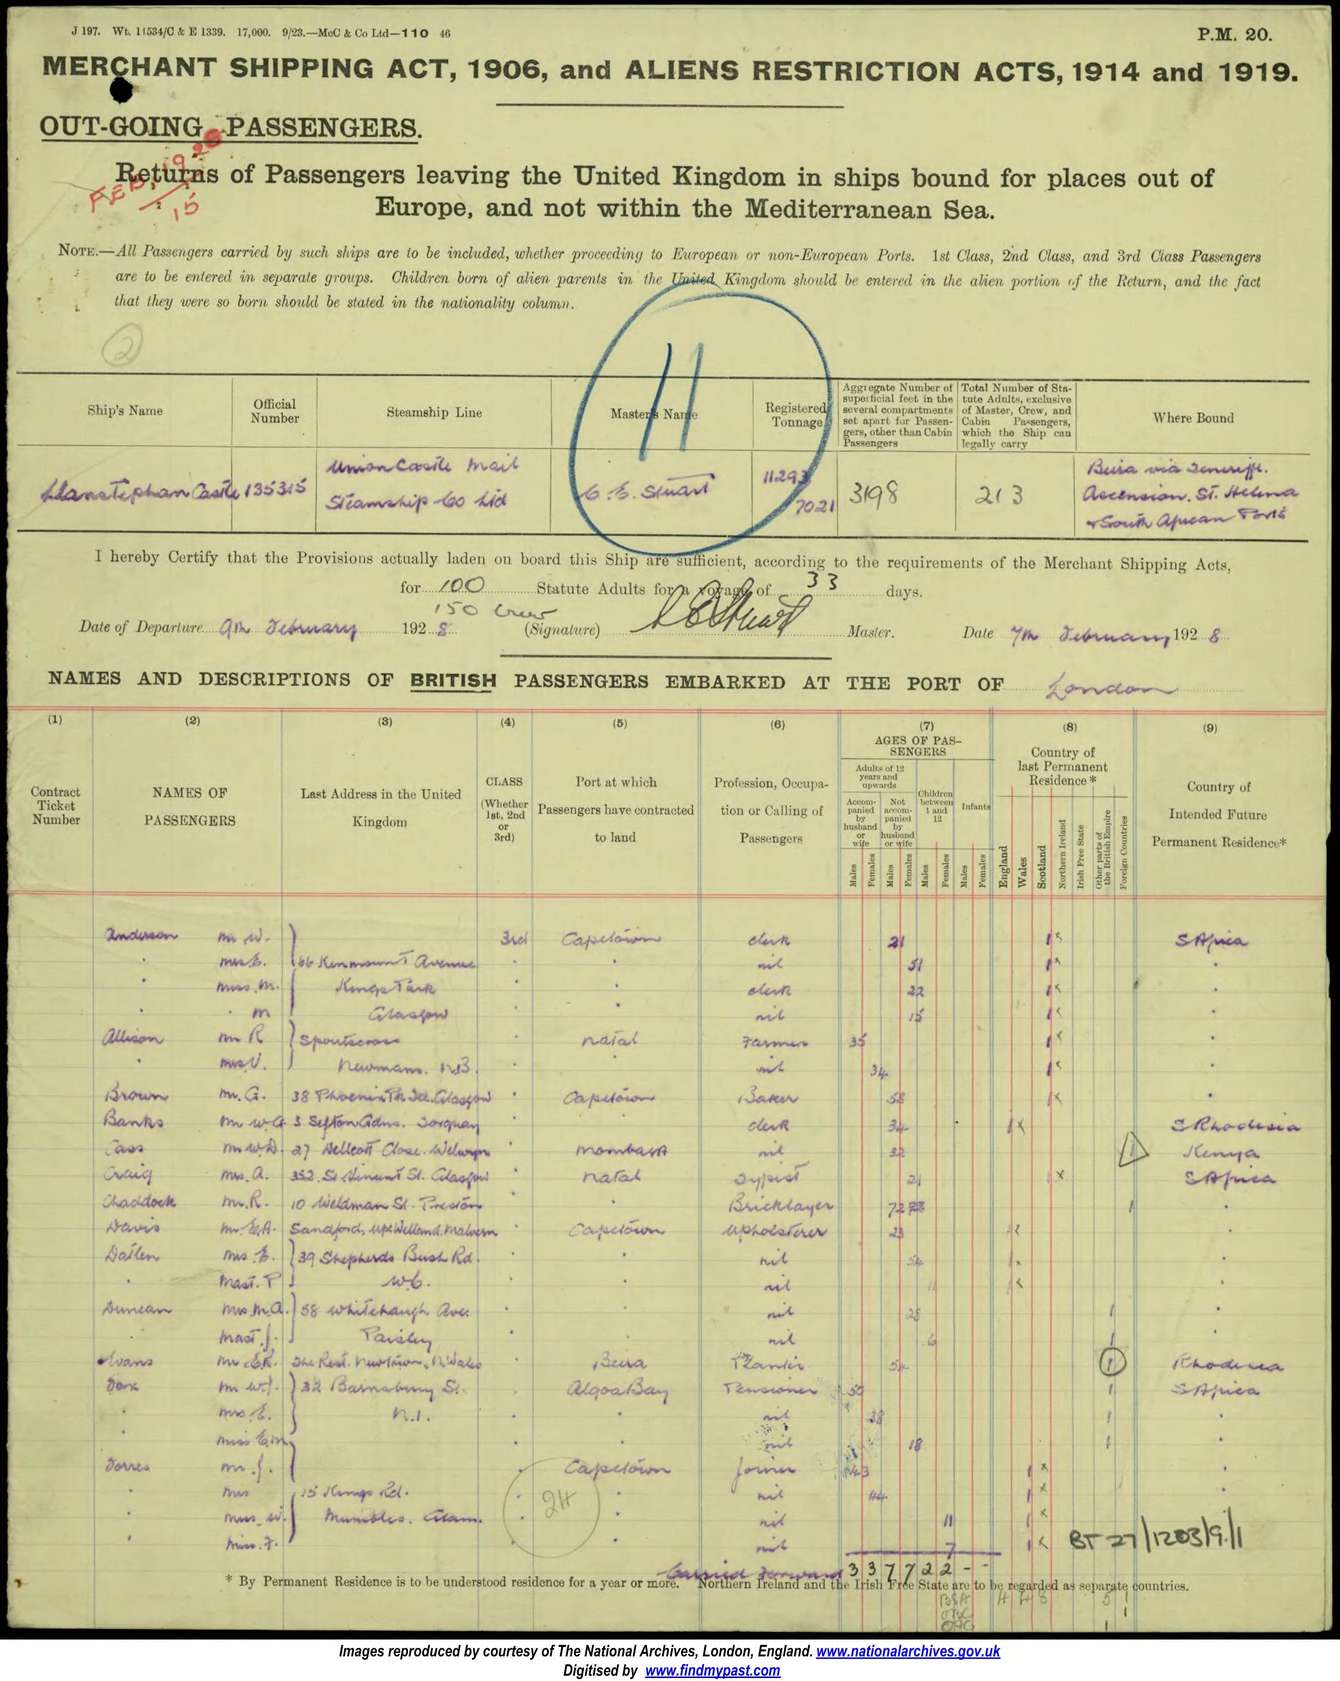 J 197. Wt. 11534/C & E 1339. 17,000. 9/23.—McC & Co Ltd—110 46
P.M. 20.
MERCHANT SHIPPING ACT, 1906, and ALIENS RESTRICTION ACTS, 1914 and 1919.
OUT-GOING PASSENGERS.
Returns of Passengers leaving the United Kingdom in ships bound for places out of
Europe, and not within the Mediterranean Sea.
NOTE.—All Passengers carried by such ships are to be included, whether proceeding to European or non-European Ports. 1st Class, 2nd Class, and 3rd Class Passengers
are to be entered in separate groups. Children born of alien parents in the United Kingdom should be entered in the alien portion of the Return, and the fact
that they were so born should be stated in the nationality column.
2
11
Ship's Name Official Number Steamship Line Master's Name Registered Tonnage Aggregate Number of superficial feet in the several compartments set apart for Passengers, other than Cabin Passengers Total Number of Statute Adults, exclusive of Master, Crew, and Cabin Passengers, which the Ship can legally carry Where Bound
Llanstephan Castle 135315 Union Castle Mail Steamship Co Ltd C. E. Stuart 11293 7021 3198 213 Beira via Teneriffe. Ascension. St. Helena + South African Ports
I hereby Certify that the Provisions actually laden on board this Ship are sufficient, according to the requirements of the Merchant Shipping Acts,
for 100 Statute Adults for a voyage of 33 days.
150 Crew
Date of Departure 9th February 1928 (Signature) C E Stuart Master. Date 7th February 1928
NAMES AND DESCRIPTIONS OF BRITISH PASSENGERS EMBARKED AT THE PORT OF London
(1) (2) (3) (4) (5) (6) (7) (8) (9)
Contract Ticket Number
NAMES OF PASSENGERS
Last Address in the United Kingdom
CLASS (Whether 1st, 2nd or 3rd)
Port at which Passengers have contracted to land
Profession, Occupation or Calling of Passengers
AGES OF PASSENGERS
Adults of 12 years and upwards
Accompanied by husband or wife
Not accompanied by husband or wife
Children between 1 and 12
Infants
Males Females Males Females Males Females Males Females
Country of last Permanent Residence *
England Wales Scotland Northern Ireland Irish Free State Other parts of the British Empire Foreign Countries
Country of Intended Future Permanent Residence*
Anderson Mr W. 3rd Capetown clerk 21 1 x S Africa
" Mrs E. 66 Kenmount Avenue " " nil 51 1 x "
" Miss. M. Kings Park " " clerk 22 1 x "
" " M Glasgow " " nil 15 1 x "
Allison Mr R Natal Farmer 35 1 x "
" Mrs V. Newmans. N.B. " " nil 34 1 x
Brown Mr. G. Glasgow " Capetown Baker 58 1 x "
Banks Mr W.G 3 Sefton Gdns. Torquay " " clerk 34 1 x S Rhodesia
Cass Mr W.D. 27 Dellcott Close. Welwyn " Mombasa nil 32 1 Kenya
Craig Mrs. A. 352. St Vincent St. Glasgow " Natal Typist 21 1 x S Africa
Chaddock Mr. R. 10 Weldman St. Preston " " Bricklayer 1 "
Davis Mr. E.A. Sandford, Malvern " Capetown Upholsterer 23 1 x "
Mrs. E. 39 Shepherds Bush Rd. " " nil 54 1 "
" Mast. P W6. " " nil 11 1 x "
Duncan Mrs. M.A. 58 Whitehaugh Ave. " nil 25 1 "
" Mast. J. Paisley " " nil 6 1
Evans Mr. E.R. The Rest. Newtown. N Wales " Beira Planter 54 1 Rhodesia
Fox Mr W.J. 32 Barnsbury St. Algoa Bay Pensioner 50 1 S Africa
" Mrs. E. N.1. " " nil 38 1 "
" Miss E.M. " " nil 18 1 "
Torres Mr. J. Capetown Joiner 43 1 x "
" Mrs 15 Kings Rd. " nil 44 1 x
" Miss. W. Mumbles. Glam. " " nil 11 1 x
" Miss. F. " nil 7 1 x
24
BT 27/1203/9/1
Carried Forward 3 3 7 7 2 2 - -
* By Permanent Residence is to be understood residence for a year or more. Northern Ireland and the Irish Free State are to be regarded as separate countries.
Images reproduced by courtesy of The National Archives, London, England. www.nationalarchives.gov.uk
Digitised by www.findmypast.com